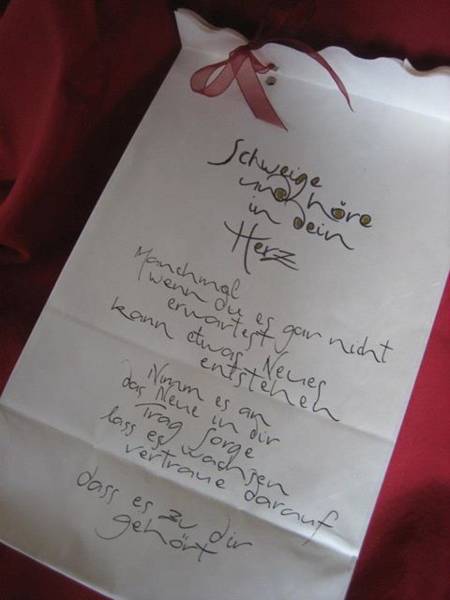 Schweige
und höre
in dein
Herz
Manchmal
wenn du es gar nicht
erwartest
kann etwas Neues
entstehen
Nimm es an
das Neue in dir
Trag Sorge
lass es wachsen
vertraue darauf
dass es zu dir
gehört